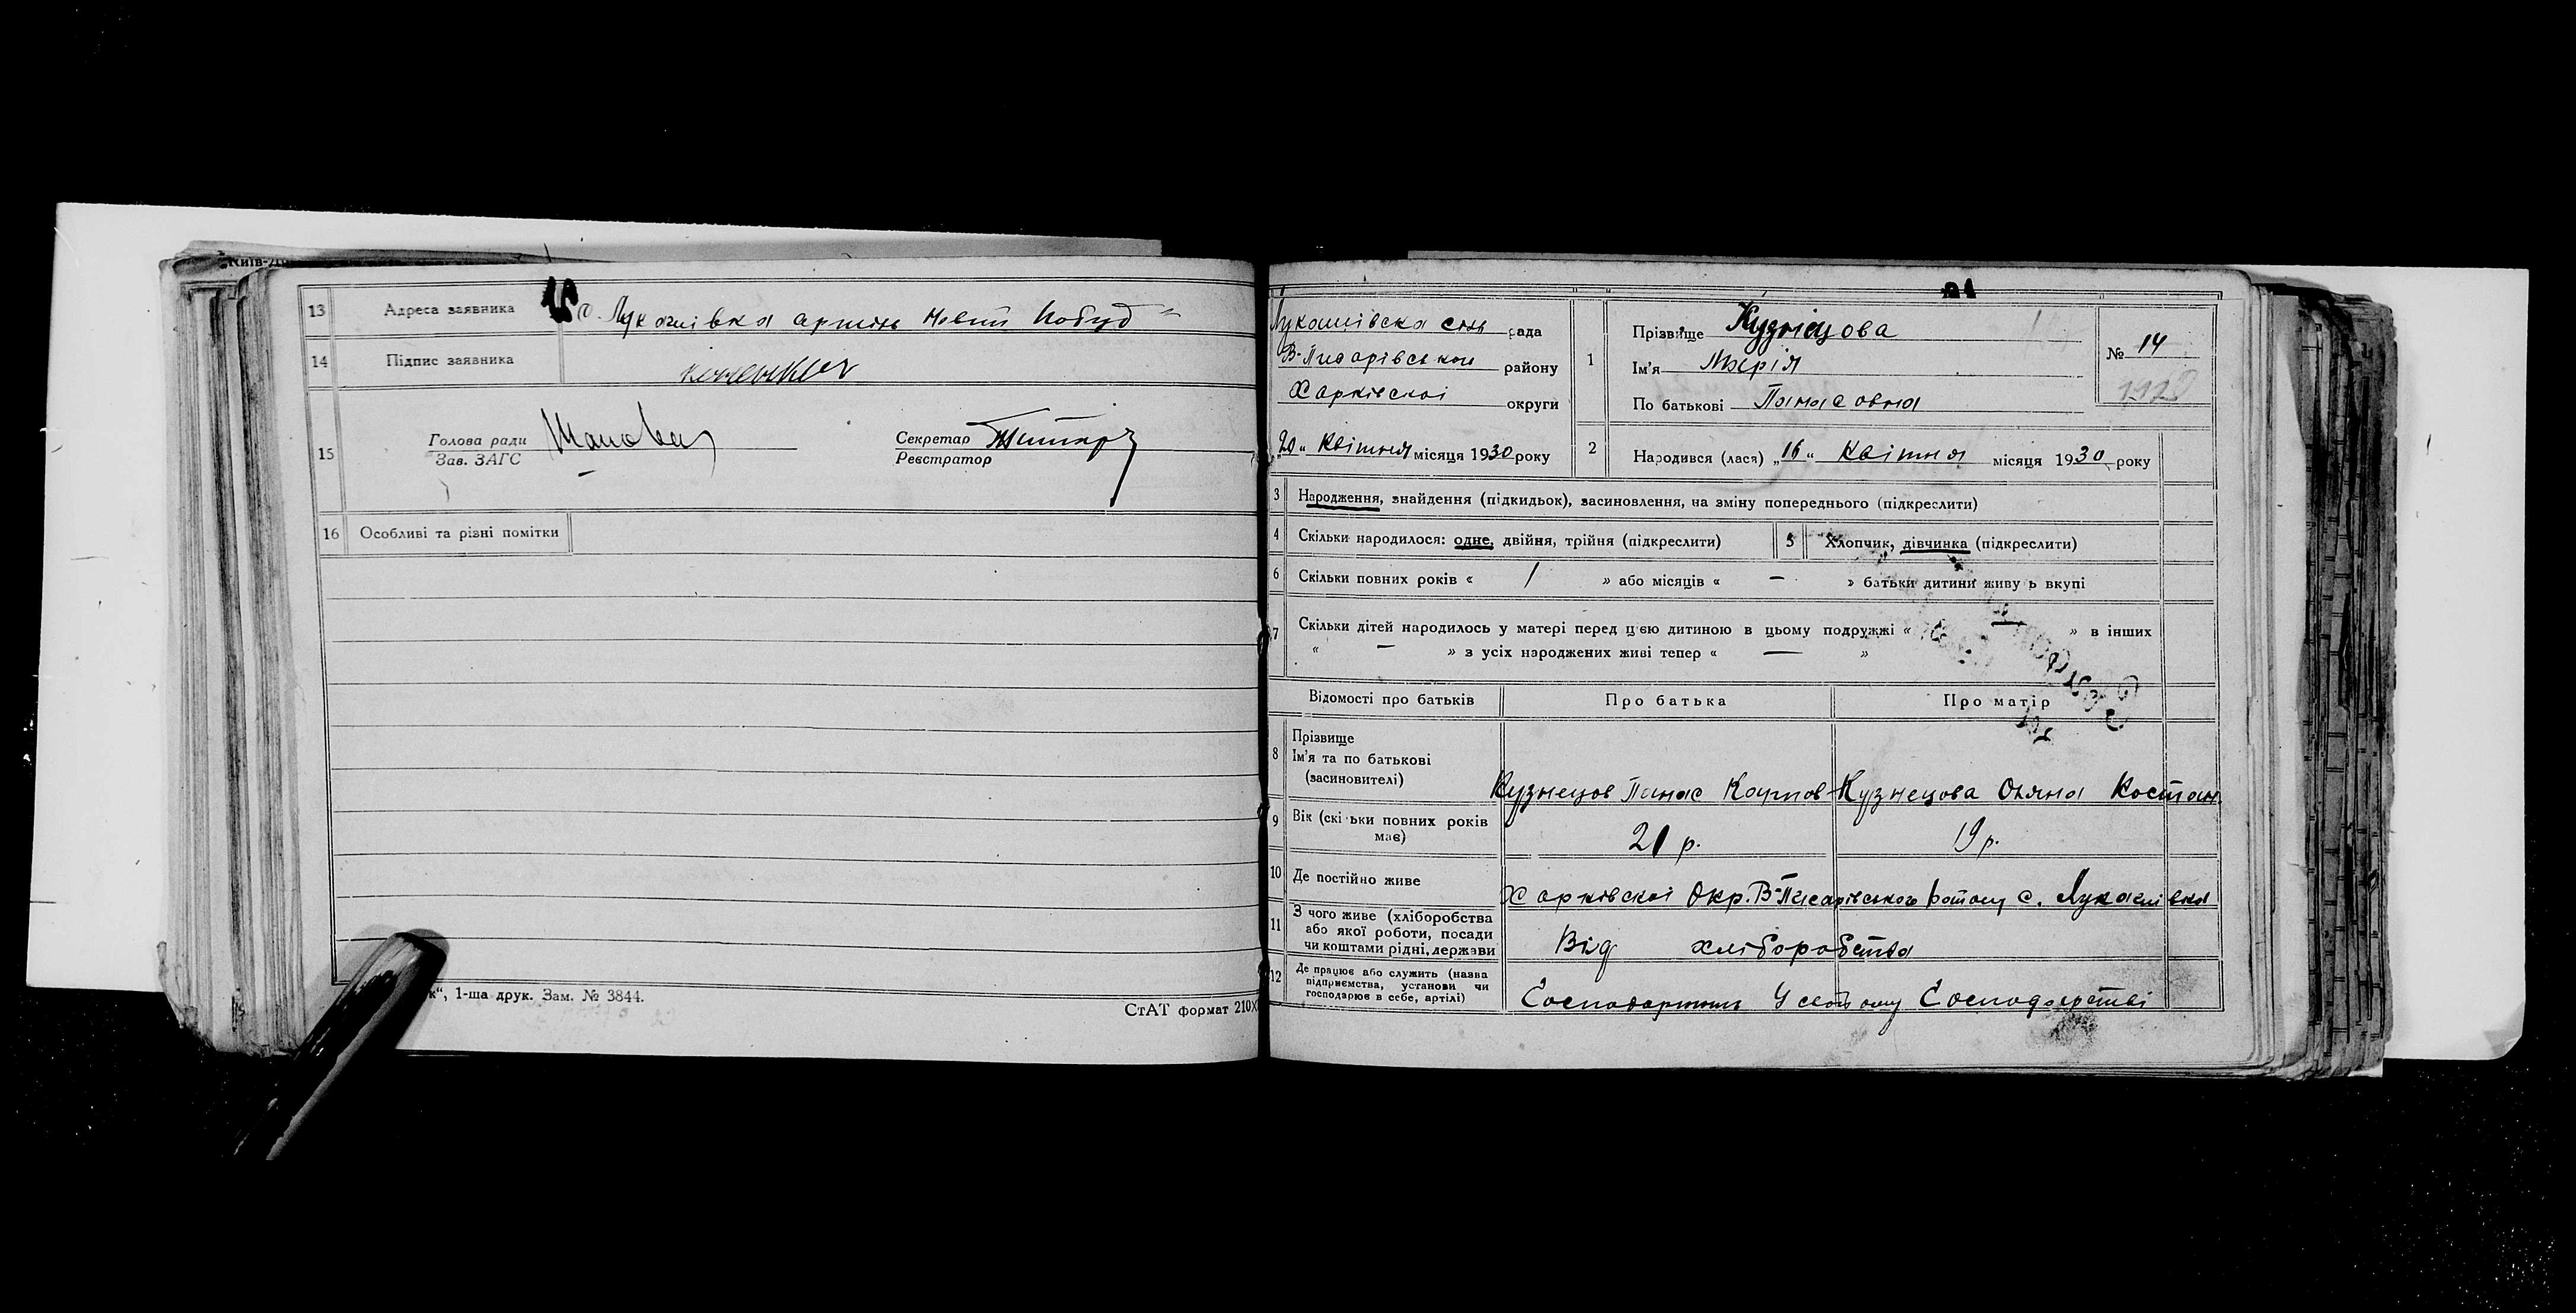 13 Адреса заявника с. Лукашівка артіль Новий Побуд
14 Підпис заявника
15 Голова ради
Зав. ЗАГС
Секретар
Реєстратор
16 Особливі та різні помітки
1-ша друк. Зам. № 3844.
СтАТ формат 210X
Лукашівска сіль рада
В-Писарівськои району
Харківскоі округи
„20“ Квітня місяця 1930 року
1 Прізвище Кузніцова
Ім'я Марія
По батькові Панасовна
№ 14
2 Народився (лася) „16“ Квітня місяця 1930 року
3 Народження, знайдення (підкидьок), засиновлення, на зміну попереднього (підкреслити)
4 Скільки народилося: одне, двійня, трійня (підкреслити)
5 Хлопчик, дівчинка (підкреслити)
6 Скільки повних років « 1 » або місяців « — » батьки дитини живу ь вкупі
7 Скільки дітей народилось у матері перед цією дитиною в цьому подружжі « — » в інших
« — » з усіх народжених живі тепер « — »
Відомості про батьків Про батька Про матір
8 Прізвище
Ім'я та по батькові
(засиновителі)
Кузнецов Панас Карпов Кузнецова Оляна Костан.
9 Вік (скі ьки повних років
має)
21 р. 19 р.
10 Де постійно живе Харківскоі Окр. В-Писарівського району с. Лукашівка
11 З чого живе (хліборобства
або якої роботи, посади
чи коштами рідні, держави
Від хліборобства
12 Де працює або служить (назва
підприємства, установи чи
господарює в себе, артілі)
У своїому Господарстві